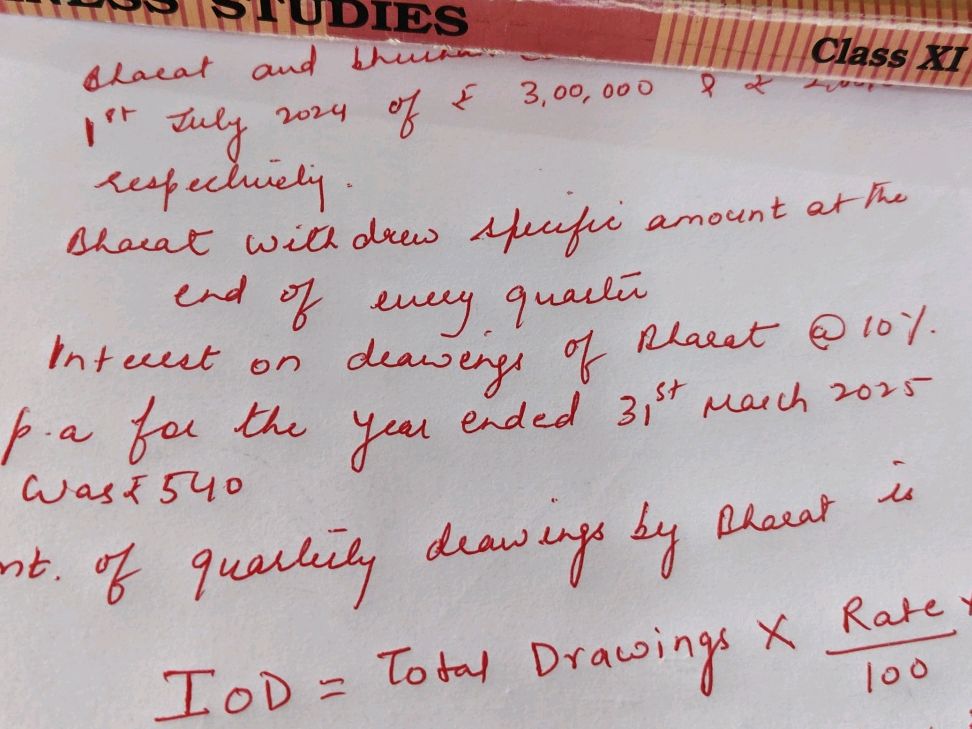 STUDIES
Class XI
Bharat and
1st July 2024 of ₹ 3,00,000 & ₹
respectively.
Bharat withdrew specific amount at the
end of every quarter
Interest on drawings of Bharat @ 10%.
p.a for the year ended 31st March 2025
was ₹ 540
of quarterly drawings by Bharat is
IOD = Total Drawings X Rate
100